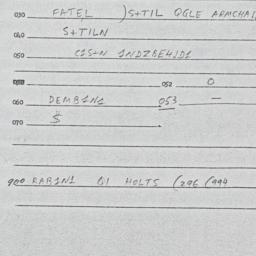 030 FATEL )S+TIL OGLE ARMCHAI
040 S+TILN
050 C1S+N 1NDZBE4JD1
052 0
060 DEMB1N1 053 —
070 $
900 RAB1N1 01 HOLTS (296 (994